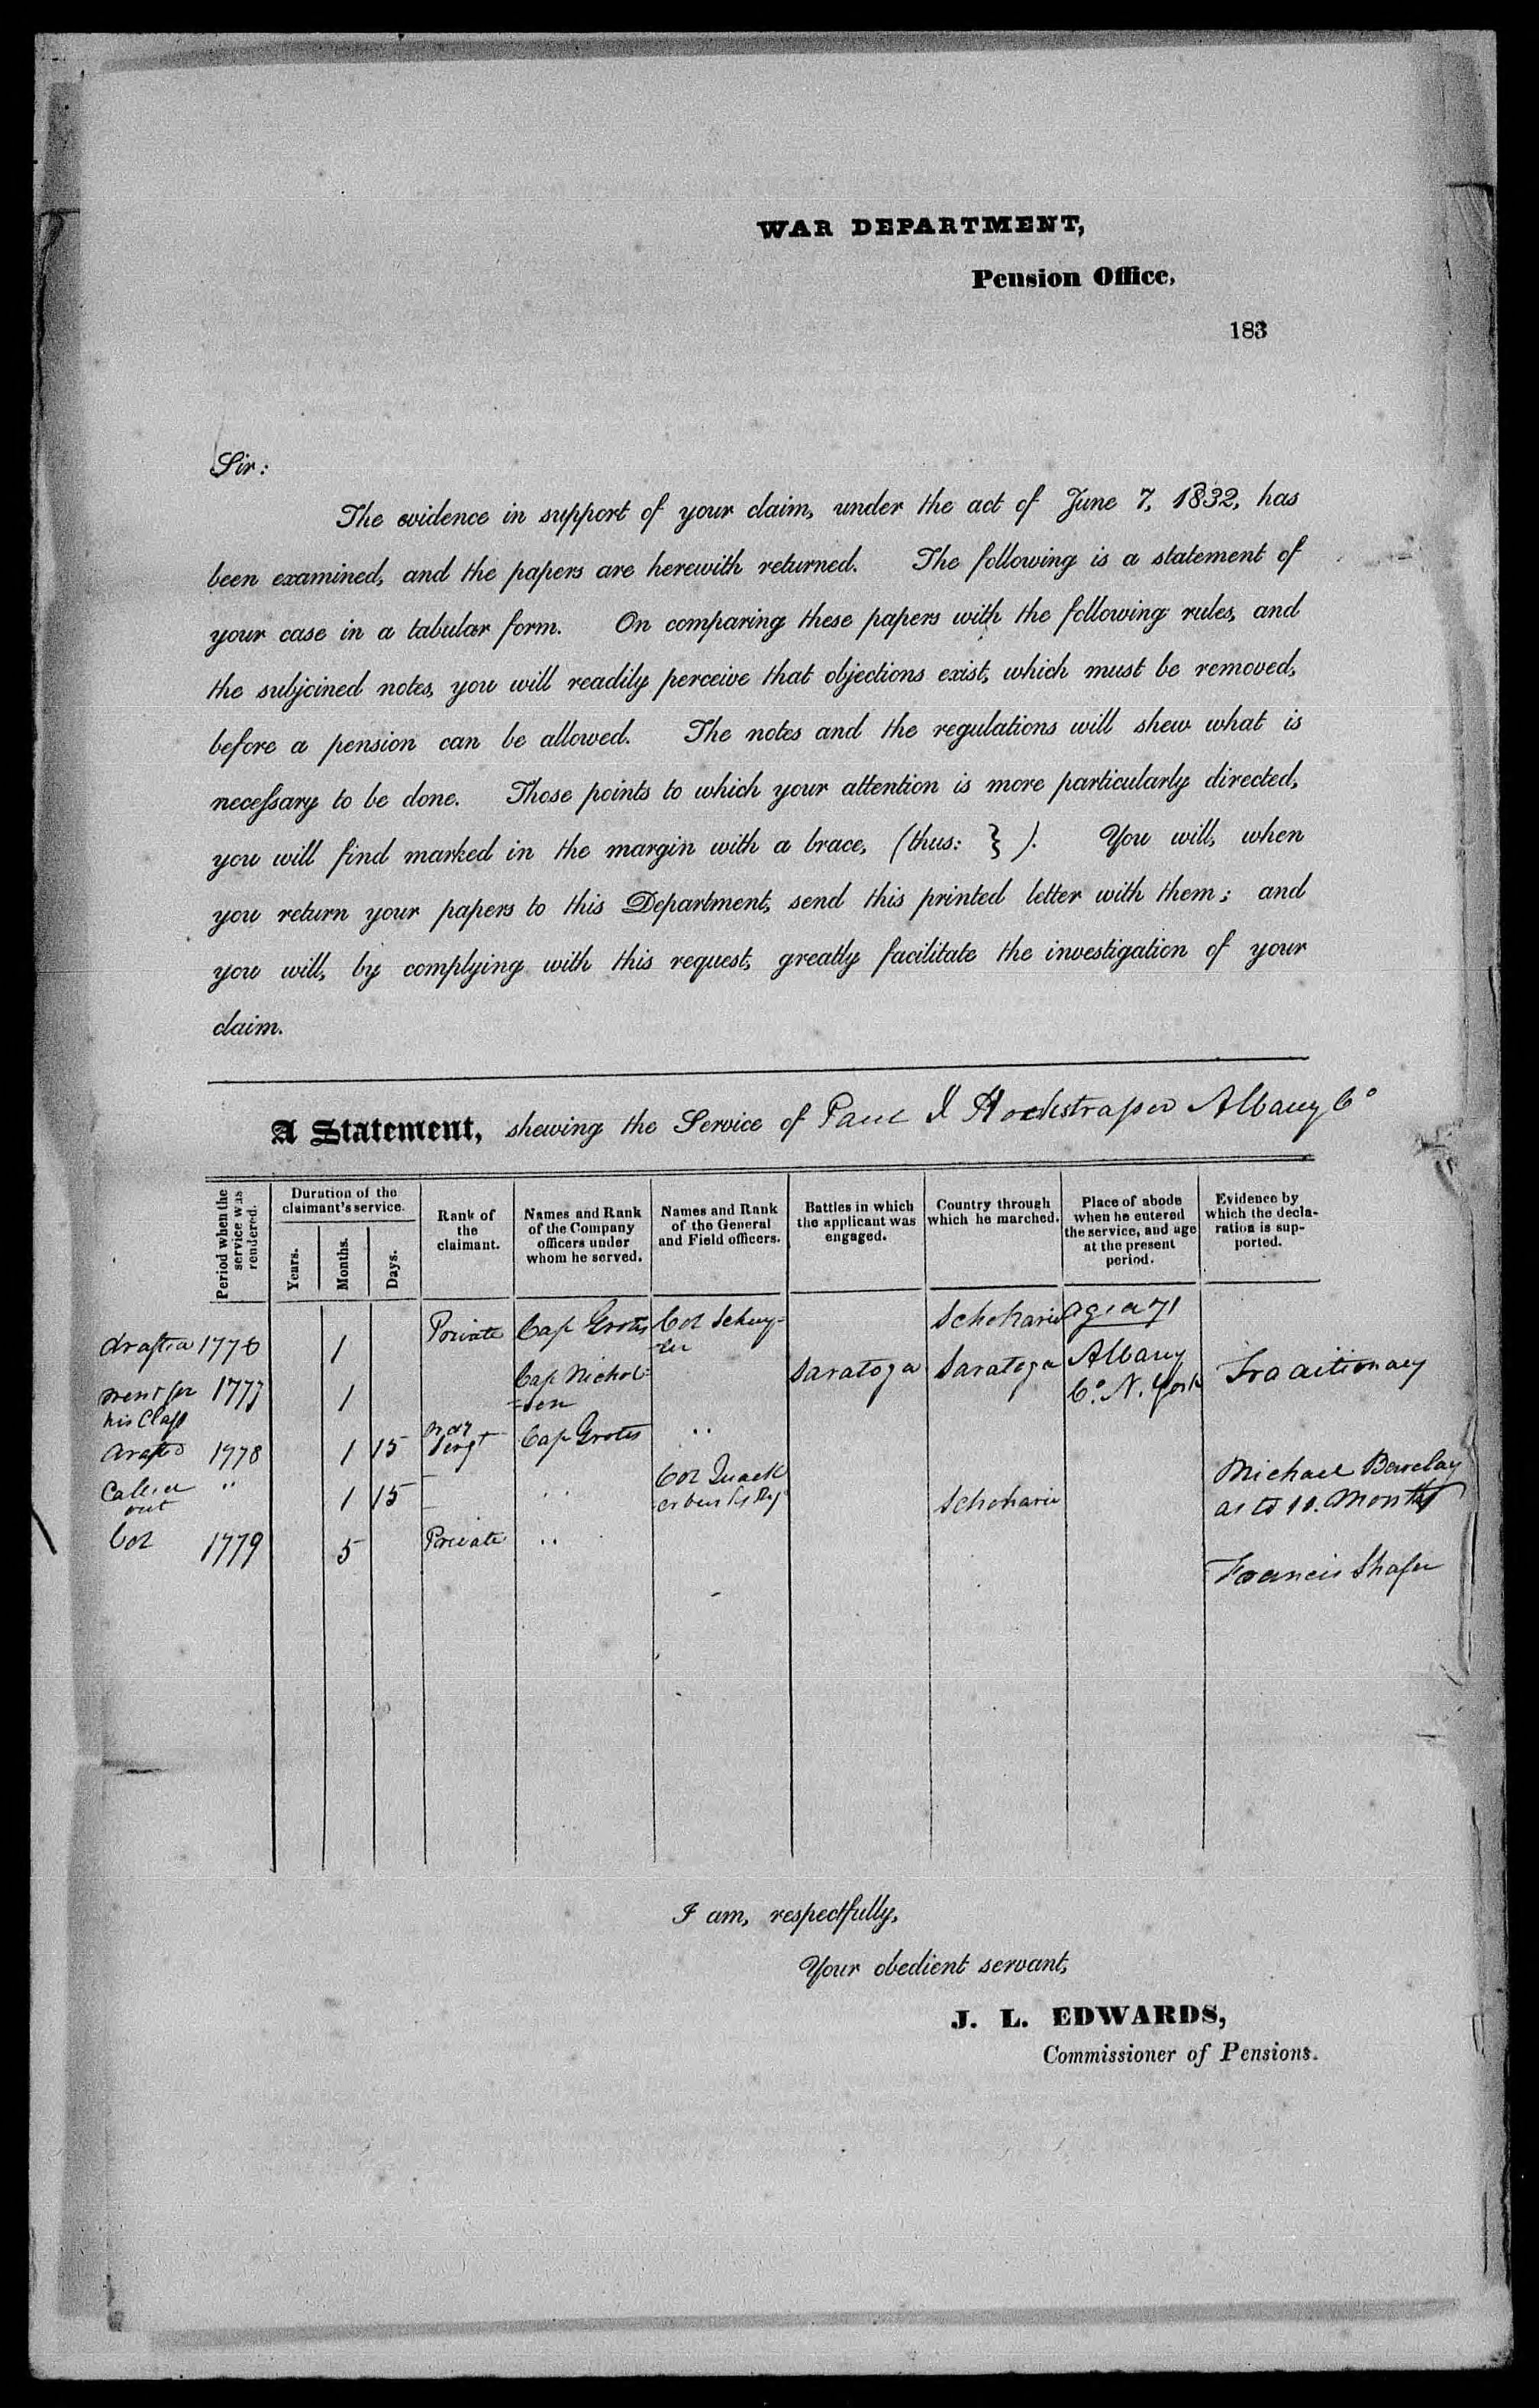 WAR DEPARTMENT,
Pension Office,
183
Sir:
The evidence in support of your claim, under the act of June 7, 1832, has
been examined, and the papers are herewith returned. The following is a statement of
your case in a tabular form. On comparing these papers with the following rules, and
the subjoined notes, you will readily perceive that objections exist, which must be removed,
before a pension can be allowed. The notes and the regulations will shew what is
necessary to be done. Those points to which your attention is more particularly directed,
you will find marked in the margin with a brace, (thus: } ). You will, when
you return your papers to this Department, send this printed letter with them; and
you will, by complying with this request, greatly facilitate the investigation of your
claim.
A Statement, shewing the Service of Paul I Hochstraper Albany Co
Period when the service was rendered.
Duration of the claimant's service.
Years.
Months.
Days.
Rank of the claimant.
Names and Rank of the Company officers under whom he served.
Names and Rank of the General and Field officers.
Battles in which the applicant was engaged.
Country through which he marched.
Place of abode when he entered the service, and age at the present period.
Evidence by which the declaration is supported.
drafted 1776 1 Private Cap Grotes Col Schuy-
ler Schoharie aged 71
went for his Class 1777 1 Cap Nichol-
son Saratoga Saratoga Albany
Co. N. York Traditionary
drafted 1778 1 15 Sergt Cap Grotes "
Called out " 1 15 " Col Quack
Schoharie Michael Barclay
as to 10. Months
1779 5 Private "
Francis Shafer
I am, respectfully,
Your obedient servant,
J. L. EDWARDS,
Commissioner of Pensions.